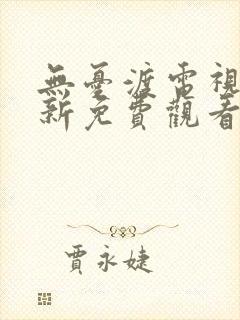 無憂渡電視
新免費觀看
賈永婕